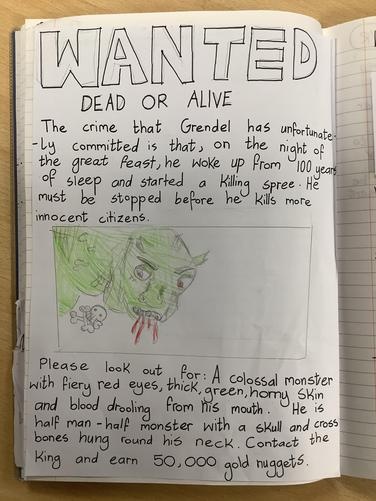 WANTED
DEAD OR ALIVE
The crime that Grendel has unfortunate-
-ly committed is that, on the night of
the great feast, he woke up from 100 years
of sleep and started a killing spree. He
must be stopped before he kills more
innocent citizens.
Please look out for: A colossal monster
with fiery red eyes, thick, green, horny skin
and blood drooling from his mouth. He is
half man-half monster with a skull and cross
bones hung round his neck. Contact the
King and earn 50,000 gold nuggets.